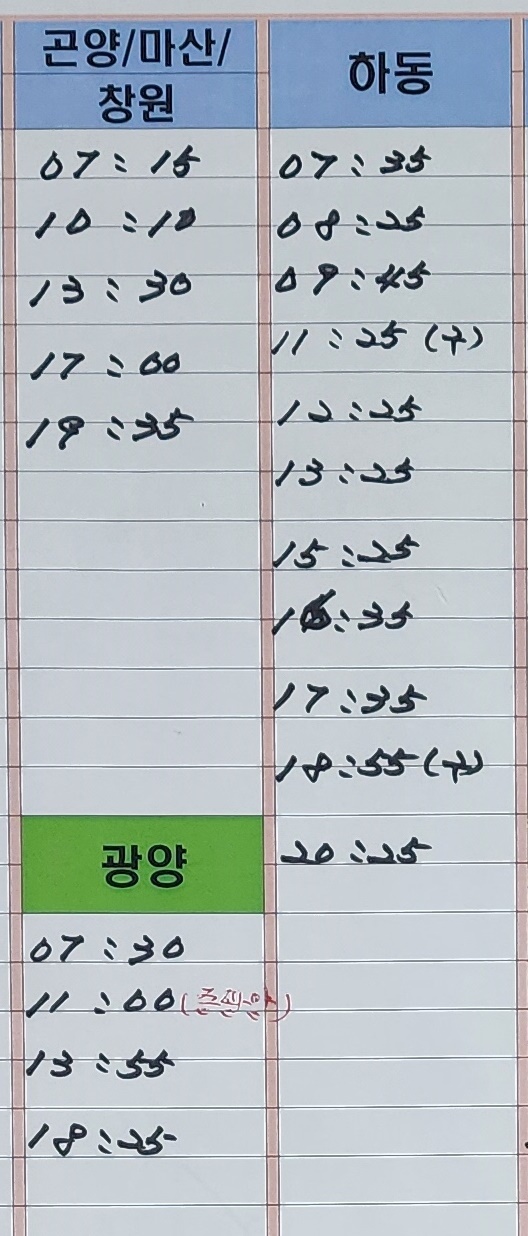 곤양/마산/
창원
07:15
10:10
13:30
17:00
19:35
광양
07:30
11:00
13:55
18:25
하동
07:35
08:25
09:45
11:25 (구)
12:25
13:25
15:25
16:35
17:35
18:55 (구)
20:25